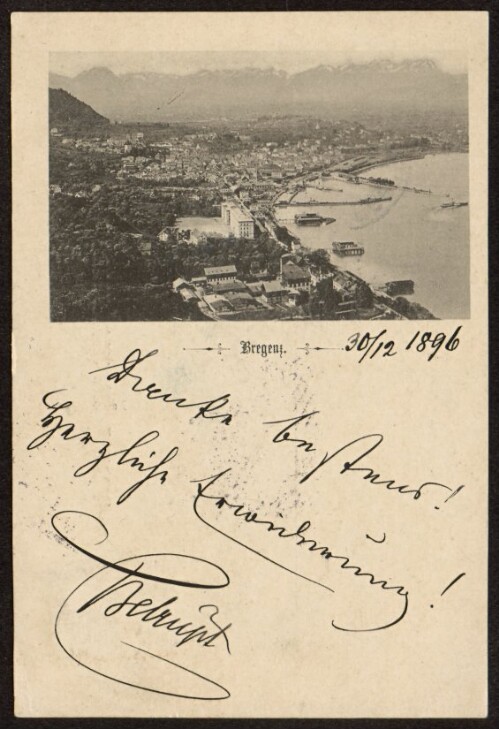 Bregenz.
30/12 1896
Danke bestens!
Herzliche Erwiderung!
Belrupt